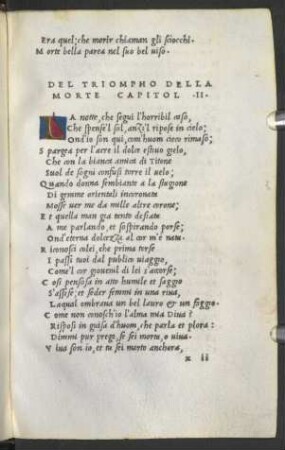 Era quel; che morir chiaman gli sciocchi.
Morte bella parea nel suo bel viso.
DEL TRIOMPHO DELLA
MORTE CAPITOL .II.
LA notte, che seguì l'horribil caso,
Che spense'l sol, anzi'l ripose in cielo;
Ond'io son qui, com'huom cieco rimaso;
Spargea per l'aere il dolce estivo gelo,
Che con la bianca amica di Titone
Suol de sogni confusi torre il velo;
Quando donna sembiante a la stagione
Di gemme orientali incoronata
Mosse ver me da mille altre corone;
Et quella man gia tanto desiata
A me parlando, et sospirando porse;
Ond'eterna dolcezza al cor m'è nata.
Riconosci colei, che prima torse
I passi tuoi dal publico uiaggio,
Come'l cor giovenil di lei s'accorse;
Cosi pensosa in atto humile et saggio
S'assise; et seder femmi in una riva,
Laqual ombrava un bel lauro & un faggio.
Come non conosch'io l'alma mia Diva?
Risposi in guisa d'huom, che parla et plora:
Dimmi pur prego, se sei morta, o uiva.
Viva son io, et tu sei morto anchora,
x ii